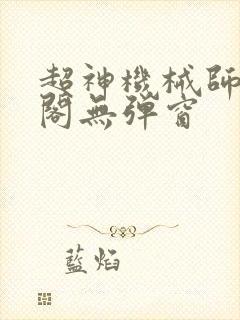 超神機械師
閣無彈窗
藍焰